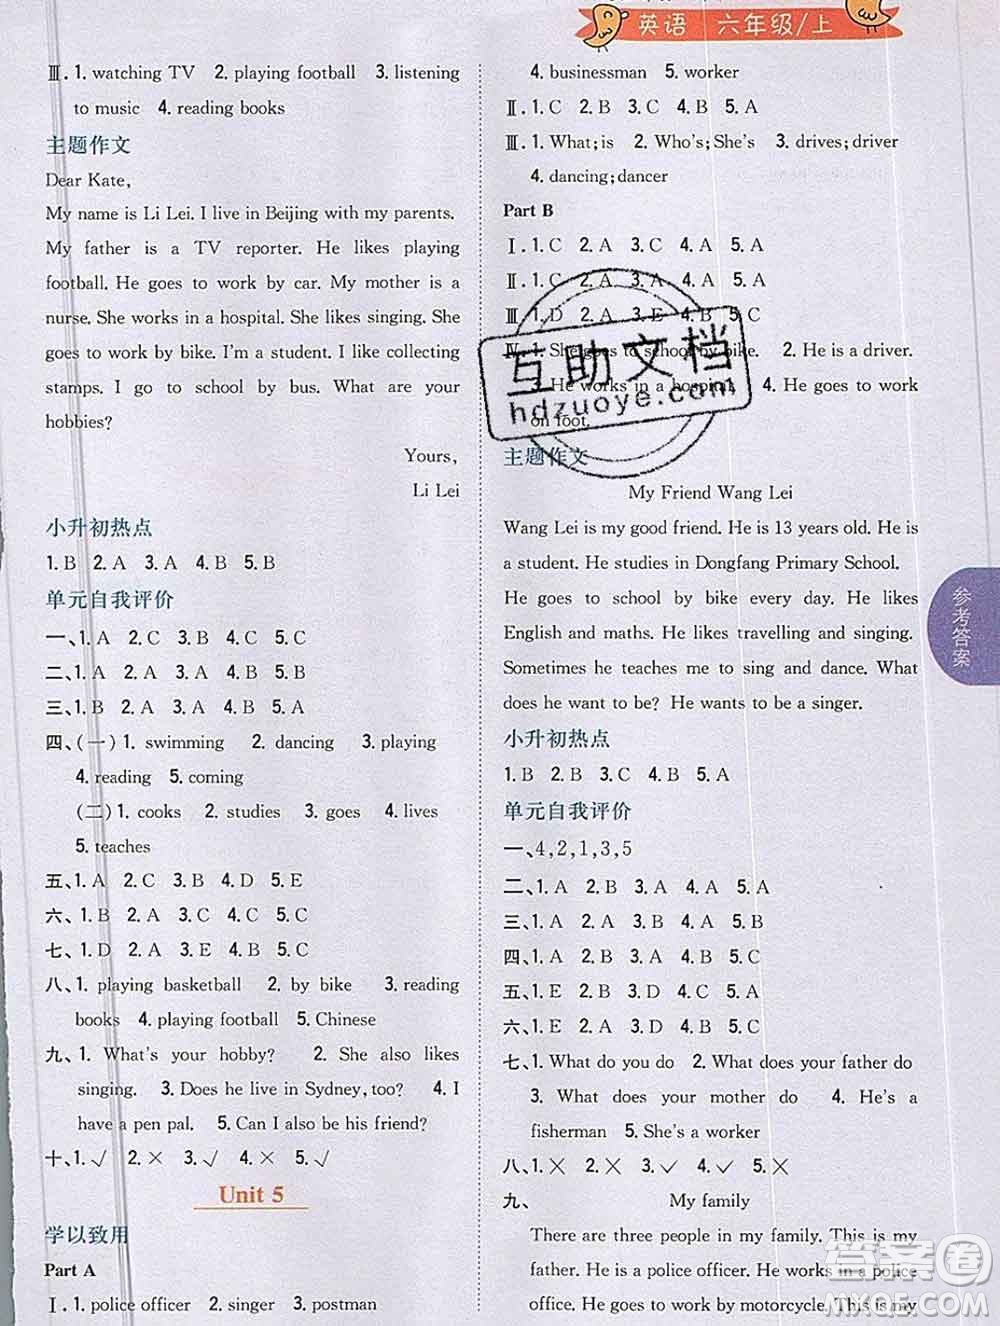 英语 六年级/上
Ⅲ. 1. watching TV 2. playing football 3. listening
to music 4. reading books
主题作文
Dear Kate,
My name is Li Lei. I live in Beijing with my parents.
My father is a TV reporter. He likes playing
football. He goes to work by car. My mother is a
nurse. She works in a hospital. She likes singing. She
goes to work by bike. I'm a student. I like collecting
stamps. I go to school by bus. What are your
hobbies?
Yours,
Li Lei
小升初热点
1. B 2. A 3. A 4. B 5. B
单元自我评价
一、1. A 2. C 3. B 4. C 5. C
二、1. A 2. A 3. A 4. B 5. B
三、1. B 2. A 3. A 4. A 5. B
四、(一) 1. swimming 2. dancing 3. playing
4. reading 5. coming
(二) 1. cooks 2. studies 3. goes 4. lives
5. teaches
五、1. A 2. B 3. C 4. D 5. E
六、1. B 2. A 3. C 4. C 5. B
七、1. D 2. A 3. E 4. B 5. C
八、1. playing basketball 2. by bike 3. reading
books 4. playing football 5. Chinese
九、1. What's your hobby? 2. She also likes
singing. 3. Does he live in Sydney, too? 4. I
have a pen pal. 5. Can I also be his friend?
十、1. √ 2. × 3. √ 4. × 5. √
Unit 5
学以致用
Part A
Ⅰ. 1. police officer 2. singer 3. postman
4. businessman 5. worker
Ⅱ. 1. C 2. B 3. C 4. C 5. A
Ⅲ. 1. What; is 2. Who's; She's 3. drives; driver
4. dancing; dancer
Part B
Ⅰ. 1. C 2. A 3. C 4. A 5. A
Ⅱ. 1. C 2. A 3. A 4. A 5. A
Ⅲ. 1. D 2. A 3. E 4. B 5. C
Ⅳ. 1. She goes to school by bike. 2. He is a driver.
3. He works in a hospital. 4. He goes to work
on foot.
主题作文
My Friend Wang Lei
Wang Lei is my good friend. He is 13 years old. He is
a student. He studies in Dongfang Primary School.
He goes to school by bike every day. He likes
English and maths. He likes travelling and singing.
Sometimes he teaches me to sing and dance. What
does he want to be? He wants to be a singer.
小升初热点
1. B 2. B 3. A 4. B 5. A
单元自我评价
一、4,2,1,3,5
二、1. A 2. A 3. B 4. A 5. A
三、1. A 2. A 3. B 4. A 5. B
四、1. A 2. B 3. A 4. B 5. A
五、1. E 2. B 3. D 4. A 5. C
六、1. E 2. A 3. D 4. B 5. C
七、1. What do you do 2. What does your father do
3. What does your mother do 4. He's a
fisherman 5. She's a worker
八、1. × 2. × 3. √ 4. √ 5. ×
九、 My family
There are three people in my family. This is my
father. He is a police officer. He works in a police
office. He goes to work by motorcycle. This is my
参考答案
互助文档
hdzuoye.com
答案圈
MXQE.COM